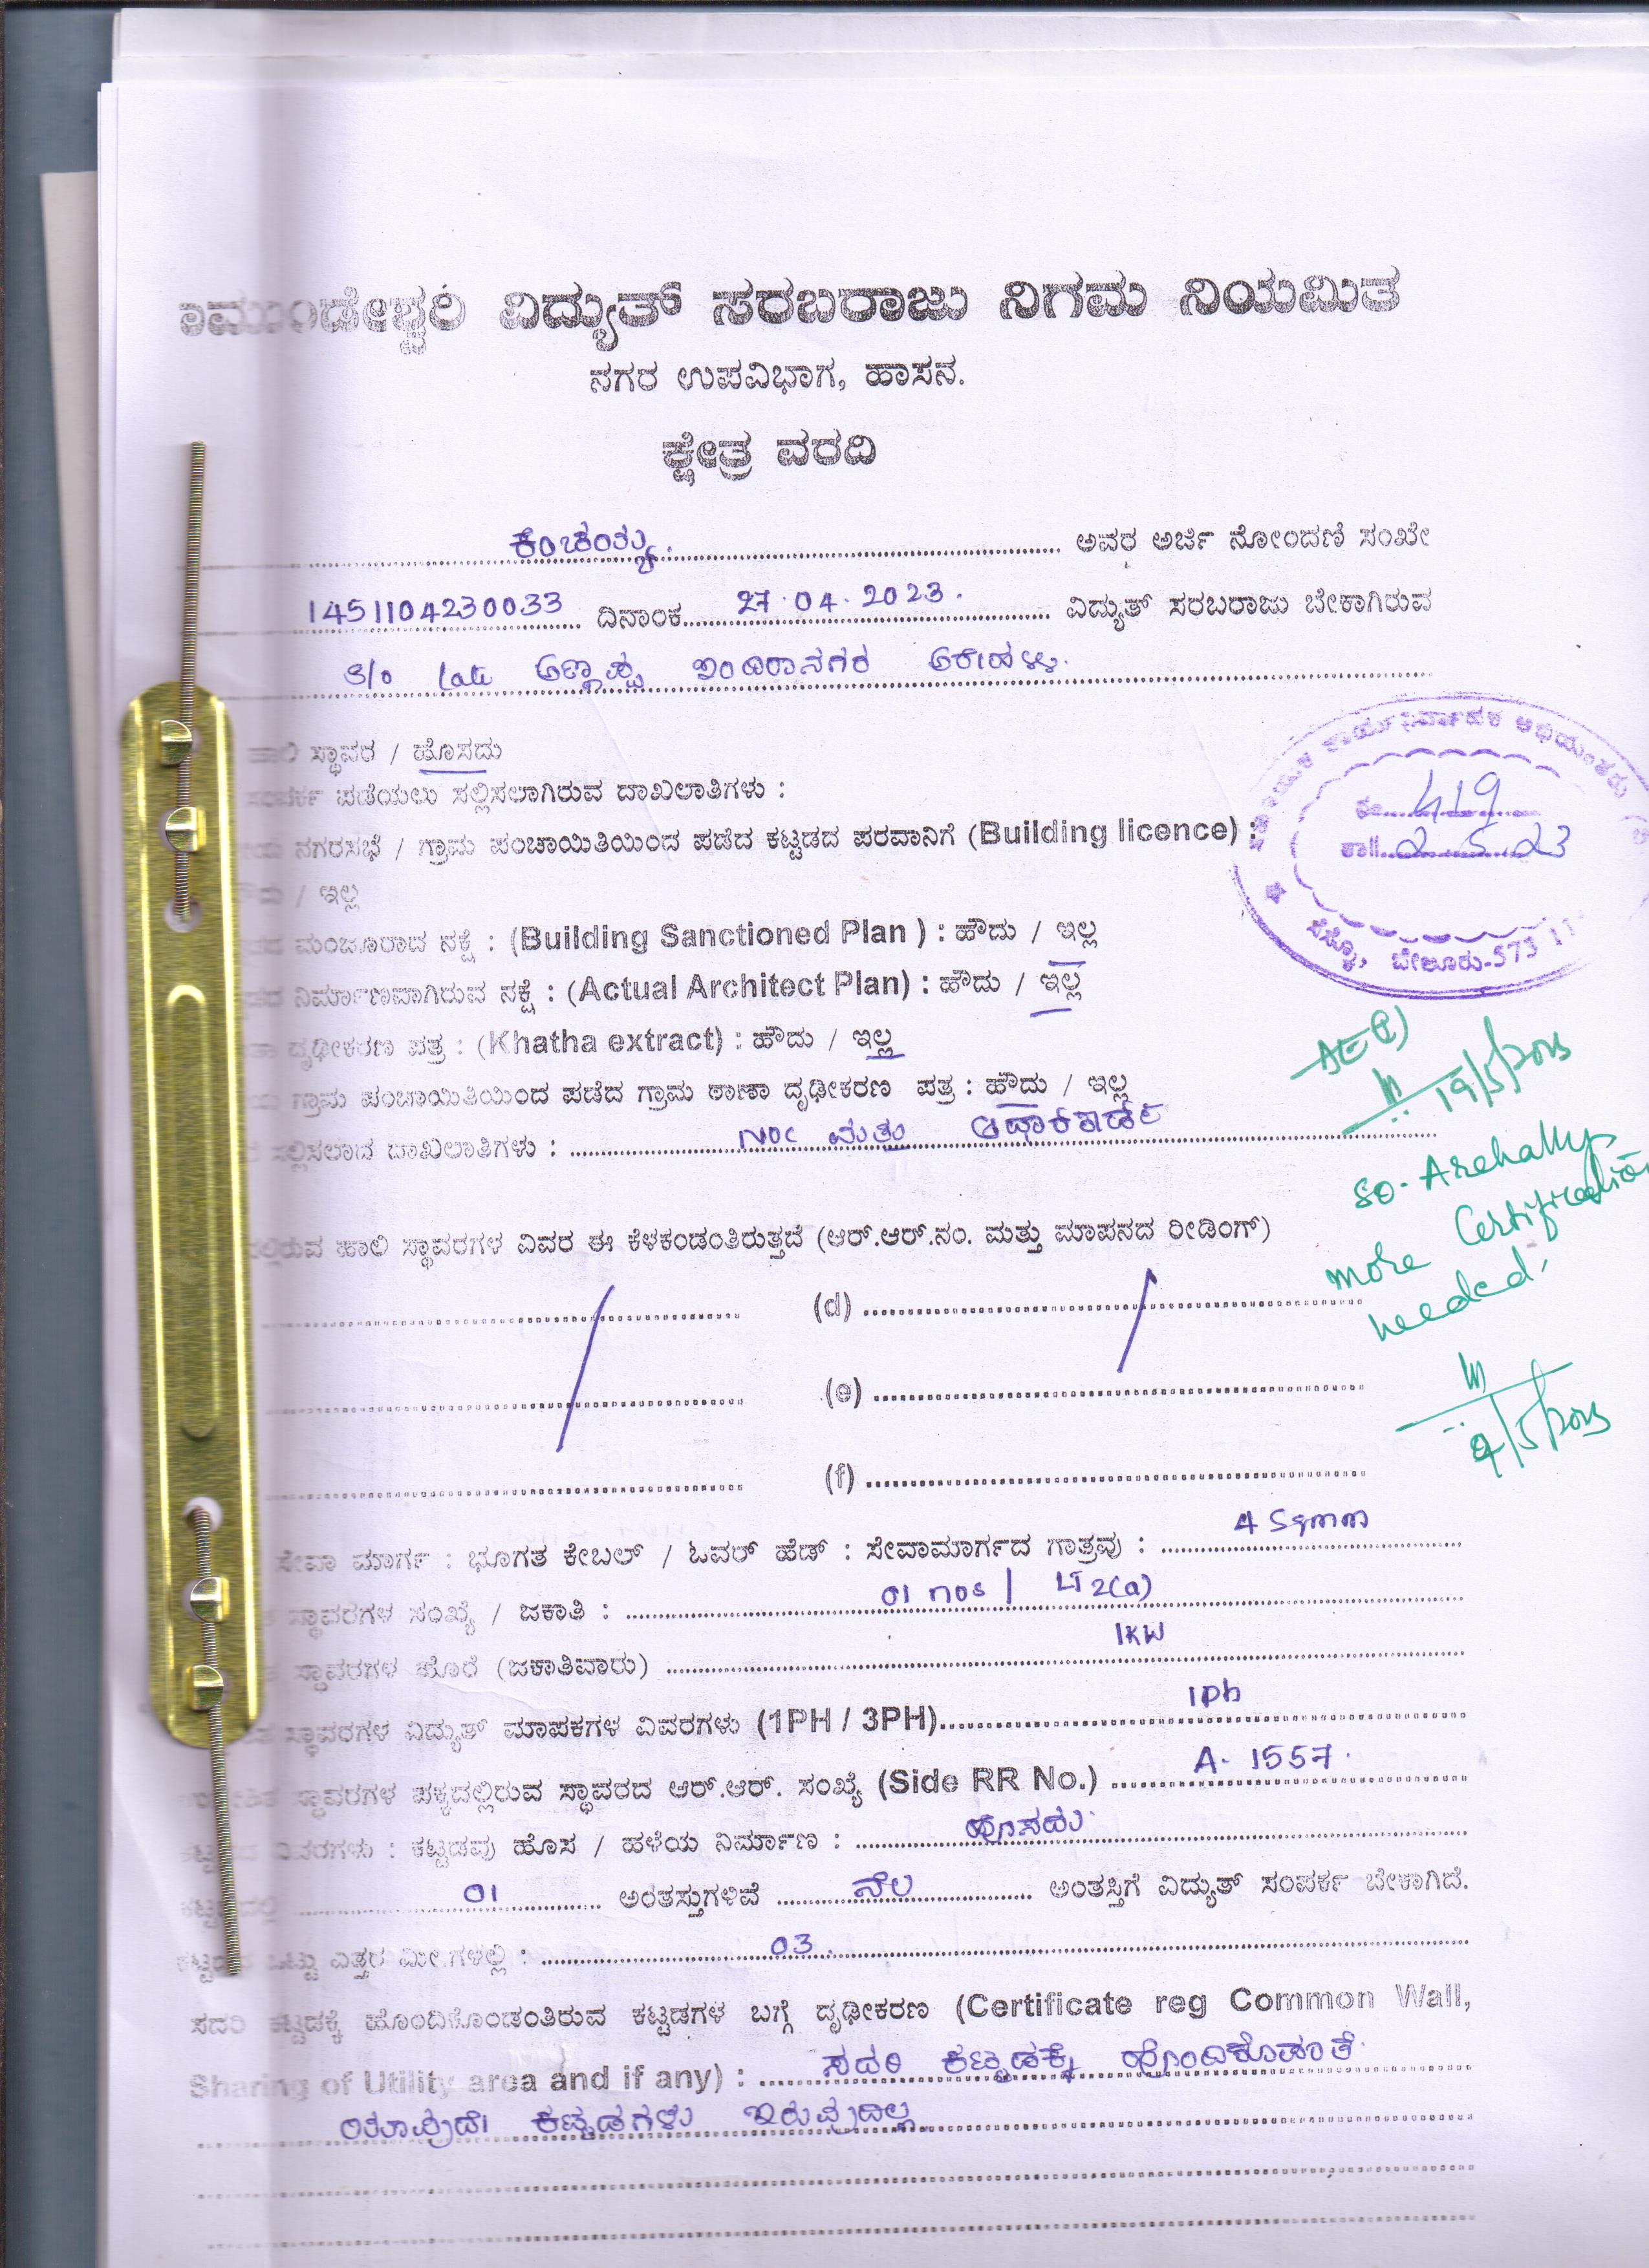 ಾಮುಂಡೇಶ್ವರಿ ವಿದ್ಯುತ್ ಸರಬರಾಜು ನಿಗಮ ನಿಯಮಿತ
ನಗರ ಉಪವಿಭಾಗ, ಹಾಸನ.
ಕ್ಷೇತ್ರ ವರದಿ
ಕೆಂಚಯ್ಯ. ಅವರ ಅರ್ಜಿ ನೋಂದಣಿ ಸಂಖೇ
1451104230033 ದಿನಾಂಕ 27.04.2023. ವಿದ್ಯುತ್ ಸರಬರಾಜು ಬೇಕಾಗಿರುವ
S/o late ಅಣ್ಣಪ್ಪ ಇಂದಿರಾನಗರ ಅರೇಹಳ್ಳಿ.
ಹಾಲಿ ಸ್ಥಾವರ / ಹೊಸದು
ಸಂಪರ್ಕ ಪಡೆಯಲು ಸಲ್ಲಿಸಲಾಗಿರುವ ದಾಖಲಾತಿಗಳು :
ನಗರಸಭೆ / ಗ್ರಾಮ ಪಂಚಾಯಿತಿಯಿಂದ ಪಡೆದ ಕಟ್ಟಡದ ಪರವಾನಿಗೆ (Building licence) :
/ ಇಲ್ಲ
ಮಂಜೂರಾದ ನಕ್ಷೆ : (Building Sanctioned Plan ) : ಹೌದು / ಇಲ್ಲ
ನಿರ್ಮಾಣವಾಗಿರುವ ನಕ್ಷೆ : (Actual Architect Plan) : ಹೌದು / ಇಲ್ಲ
ದೃಢೀಕರಣ ಪತ್ರ : (Khatha extract) : ಹೌದು / ಇಲ್ಲ
ಗ್ರಾಮ ಪಂಚಾಯಿತಿಯಿಂದ ಪಡೆದ ಗ್ರಾಮ ಠಾಣಾ ದೃಢೀಕರಣ ಪತ್ರ : ಹೌದು / ಇಲ್ಲ
ಸಲ್ಲಿಸಲಾದ ದಾಖಲಾತಿಗಳು : NOC ಮತ್ತು ಆಧಾರಕಾರ್ಡ್
ಕ್ರ 419
ದಿ 2.5.23
ಸೆಸ್ಕ್, ಬೇಲೂರು-573 11
AE(E)
19/5/2023
SO-Arehally
more Certification
needed.
9/5/2023
ಹಾಲಿ ಸ್ಥಾವರಗಳ ವಿವರ ಈ ಕೆಳಕಂಡಂತಿರುತ್ತದೆ (ಆರ್.ಆರ್.ನಂ. ಮತ್ತು ಮಾಪನದ ರೀಡಿಂಗ್)
(d)
(e)
(f)
ಸೇವಾ ಮಾರ್ಗ : ಭೂಗತ ಕೇಬಲ್ / ಓವರ್ ಹೆಡ್ : ಸೇವಾಮಾರ್ಗದ ಗಾತ್ರವು : 4 Sqmm
ಸ್ಥಾವರಗಳ ಸಂಖ್ಯೆ / ಜಕಾತಿ : 01 nos / LT2(a)
ಸ್ಥಾವರಗಳ ಹೊರೆ (ಜಕಾತಿವಾರು) 1KW
ಸ್ಥಾವರಗಳ ವಿದ್ಯುತ್ ಮಾಪಕಗಳ ವಿವರಗಳು (1PH / 3PH) 1Ph
ಸ್ಥಾವರಗಳ ಪಕ್ಕದಲ್ಲಿರುವ ಸ್ಥಾವರದ ಆರ್.ಆರ್. ಸಂಖ್ಯೆ (Side RR No.) A-1557.
ವಿವರಗಳು : ಕಟ್ಟಡವು ಹೊಸ / ಹಳೆಯ ನಿರ್ಮಾಣ : ಹೊಸದು.
01 ಅಂತಸ್ತುಗಳಿವೆ ನೆಲ ಅಂತಸ್ತಿಗೆ ವಿದ್ಯುತ್ ಸಂಪರ್ಕ ಬೇಕಾಗಿದೆ.
ಒಟ್ಟು ಎತ್ತರ ಮೀ.ಗಳಲ್ಲಿ : 03.
ಸದರಿ ಕಟ್ಟಡಕ್ಕೆ ಹೊಂದಿಕೊಂಡಂತಿರುವ ಕಟ್ಟಡಗಳ ಬಗ್ಗೆ ದೃಢೀಕರಣ (Certificate reg Common Wall,
Sharing of Utility area and if any) : ಸದರಿ ಕಟ್ಟಡಕ್ಕೆ ಹೊಂದಿಕೊಡಾತೆ
ಯಾವುದೇ ಕಟ್ಟಡಗಳು ಇರುವುದಿಲ್ಲ